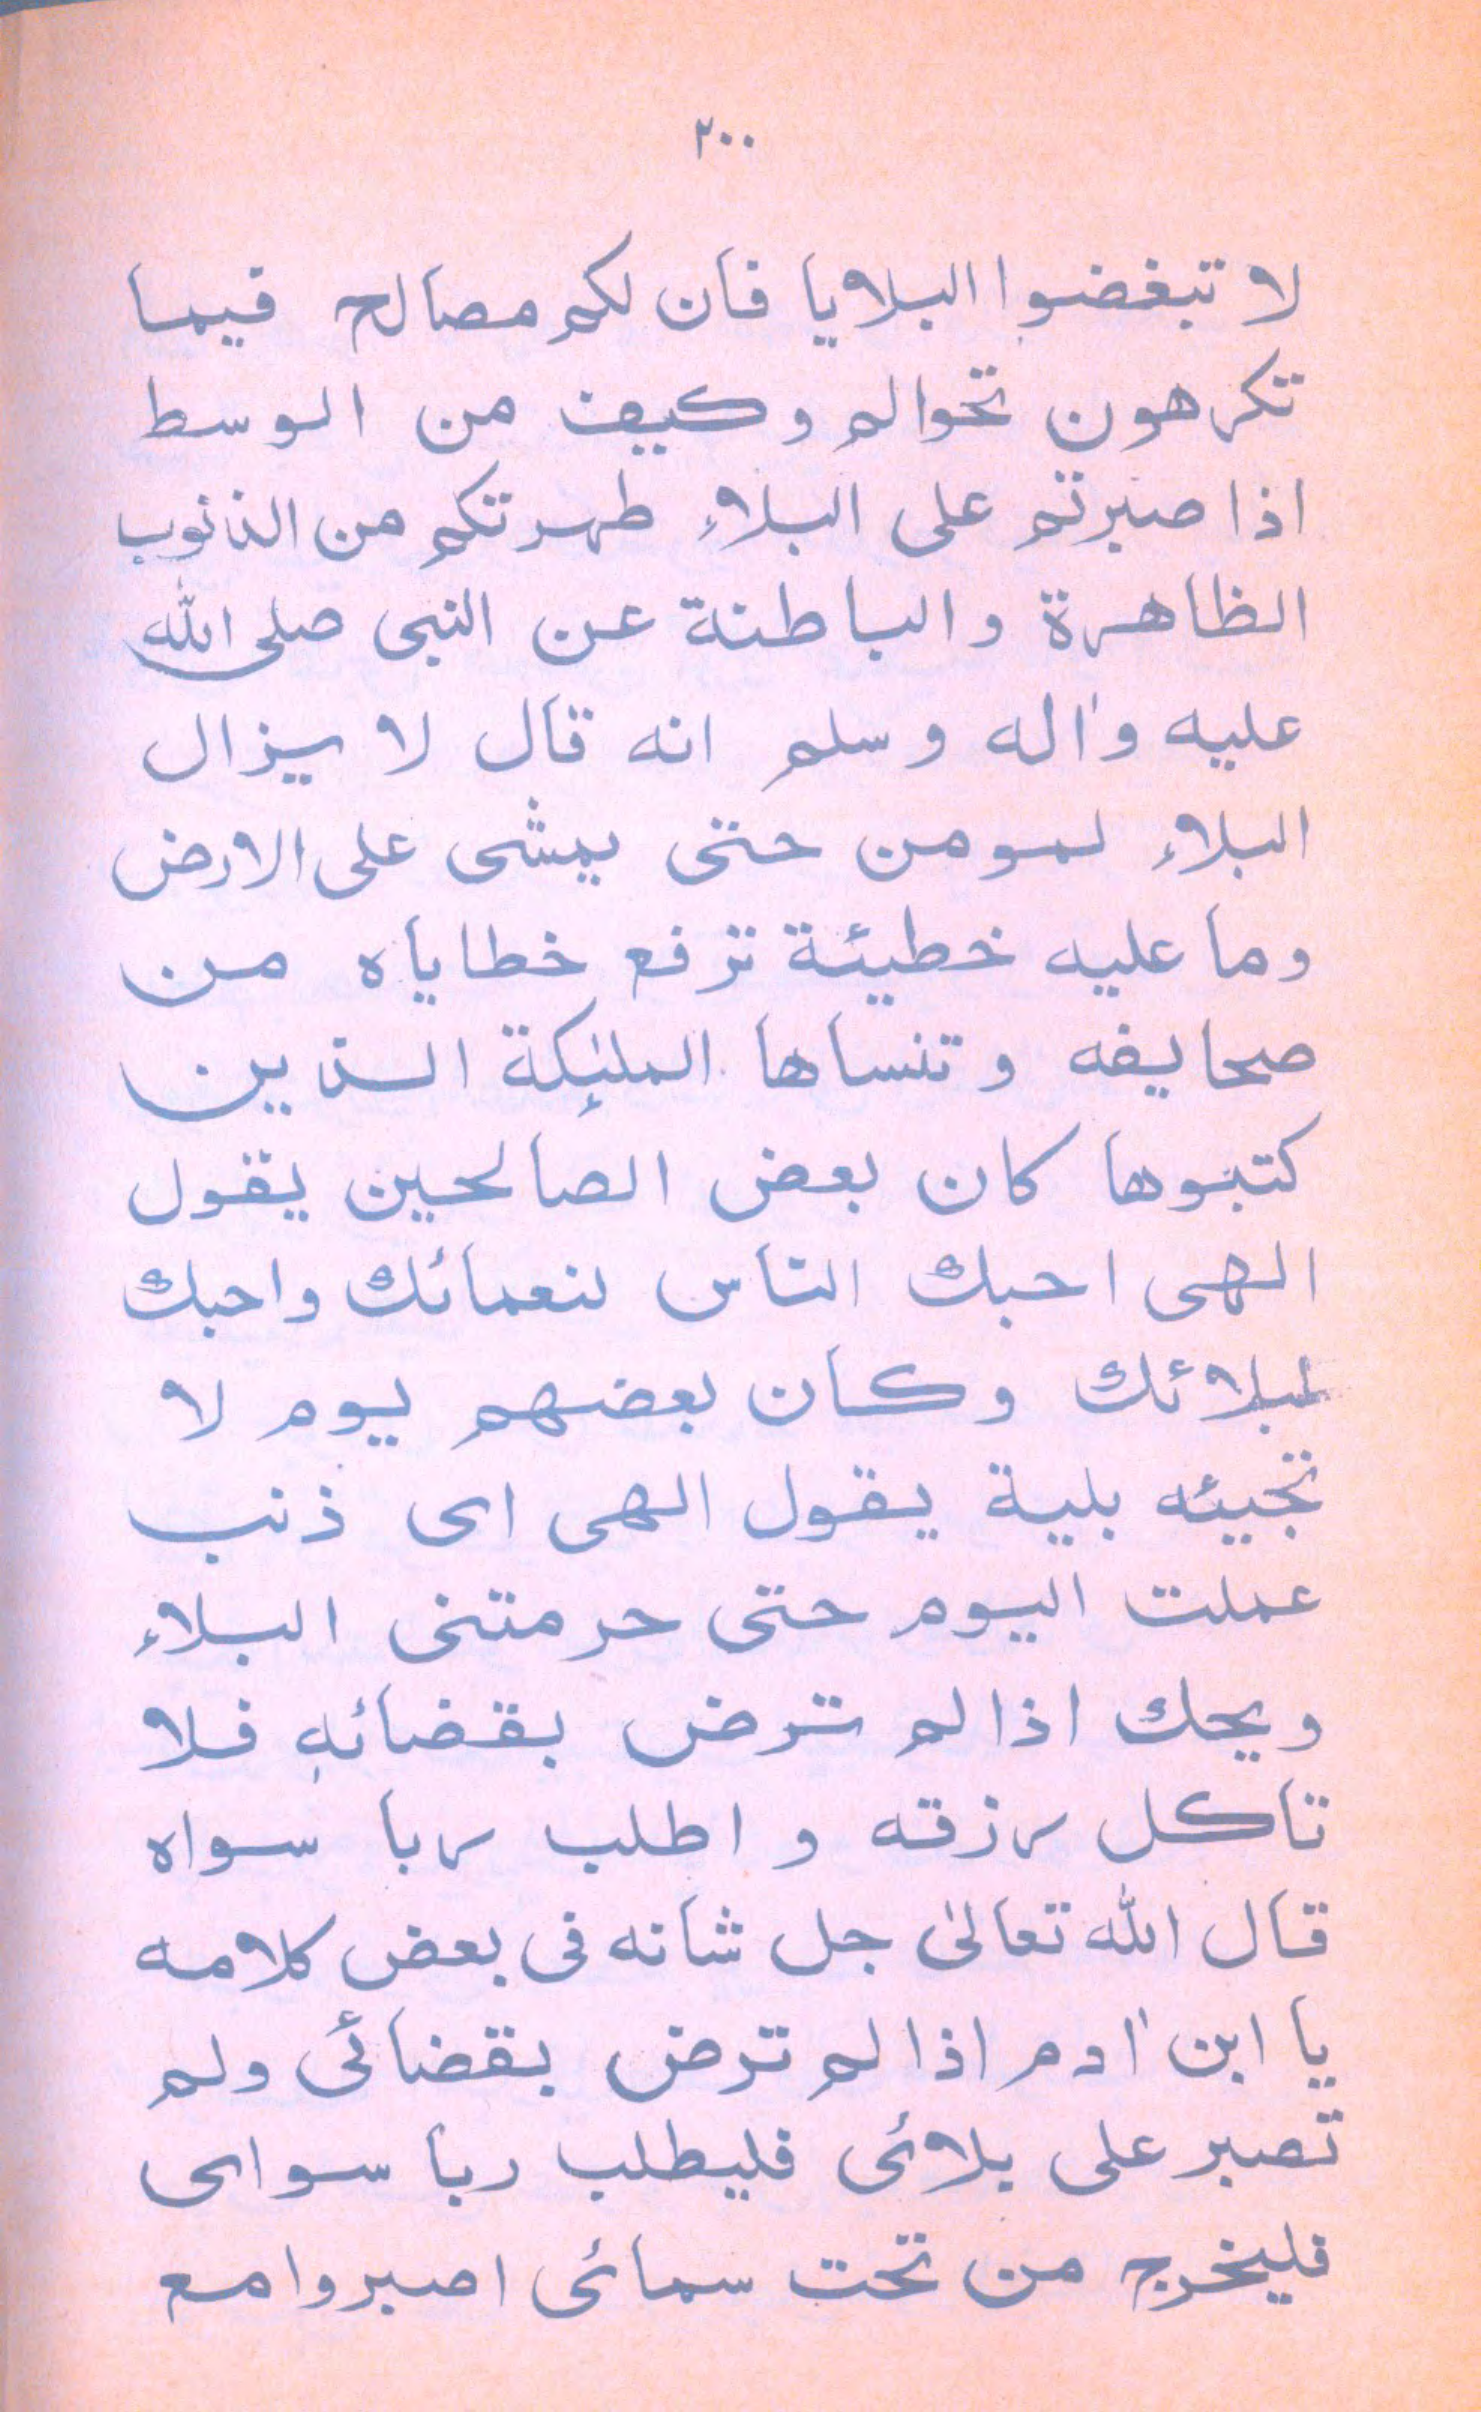 ٢٠٠
لا تبغضوا البلايا فان لكم مصالح فيما
تكرهون تحوالم وكيف من الوسط
اذا صبرتم على البلاء طهرتكم من الذنوب
الظاهرة والباطنة عن النبى صلى الله
عليه واٰله وسلم انه قال لا يزال
البلاء لمومن حتى يمشى على الارض
وما عليه خطيئة ترفع خطاياه من
صحايفه وتنساها الملٰئكة الذين
كتبوها كان بعض الصالحين يقول
الهى احبك الناس لنعمائك واحبك
لبلائك وكان بعضهم يوم لا
تجيئه بلية يقول الهى اى ذنب
عملت اليوم حتى حرمتنى البلاء
ويحك اذا لم ترض بقضائه فلا
تاكل رزقه و اطلب ربا سواه
قال الله تعالىٰ جل شانه فى بعض كلامه
يا ابن اٰدم اذا لم ترض بقضائى ولم
تصبر على بلائى فليطلب ربا سواى
فليخرج من تحت سمائى اصبروا مع